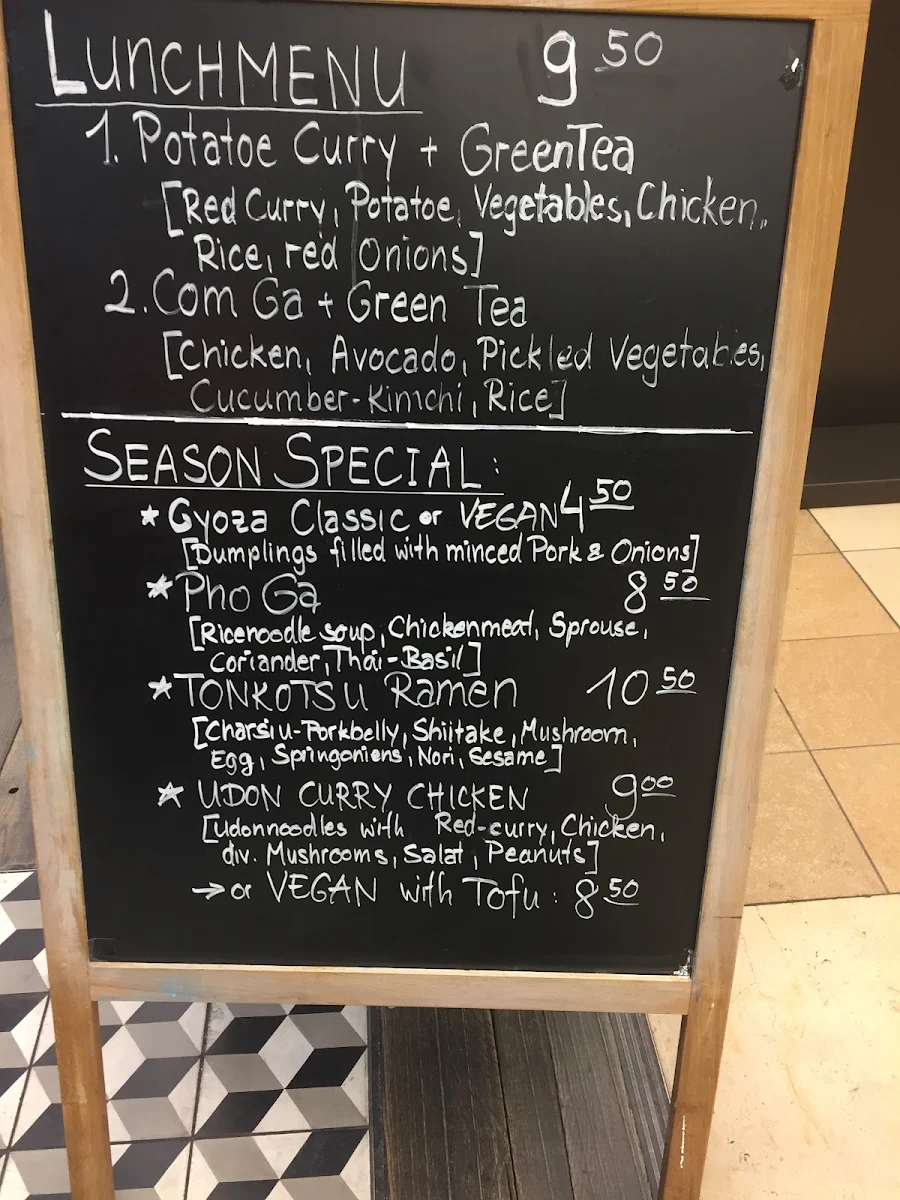 LUNCHMENU 9 50
1. Potatoe Curry + GreenTea
[Red Curry, Potatoe, Vegetables, Chicken,
Rice, red Onions]
2. Com Ga + Green Tea
[Chicken, Avocado, Pickled Vegetables,
Cucumber-Kimchi, Rice]
SEASON SPECIAL:
* Gyoza Classic or VEGAN 4 50
[Dumplings filled with minced Pork & Onions]
* Pho Ga 8 50
[Ricenoodle soup, Chickenmeat, Sprouse,
Coriander, Thai-Basil]
* TONKOTSU Ramen 10 50
[Charsiu-Porkbelly, Shiitake, Mushroom,
Egg, Springoniens, Nori, Sesame]
* UDON CURRY CHICKEN 9 00
[Udonnoodles with Red-curry, Chicken,
div. Mushrooms, Salat, Peanuts]
→ or VEGAN with Tofu: 8 50